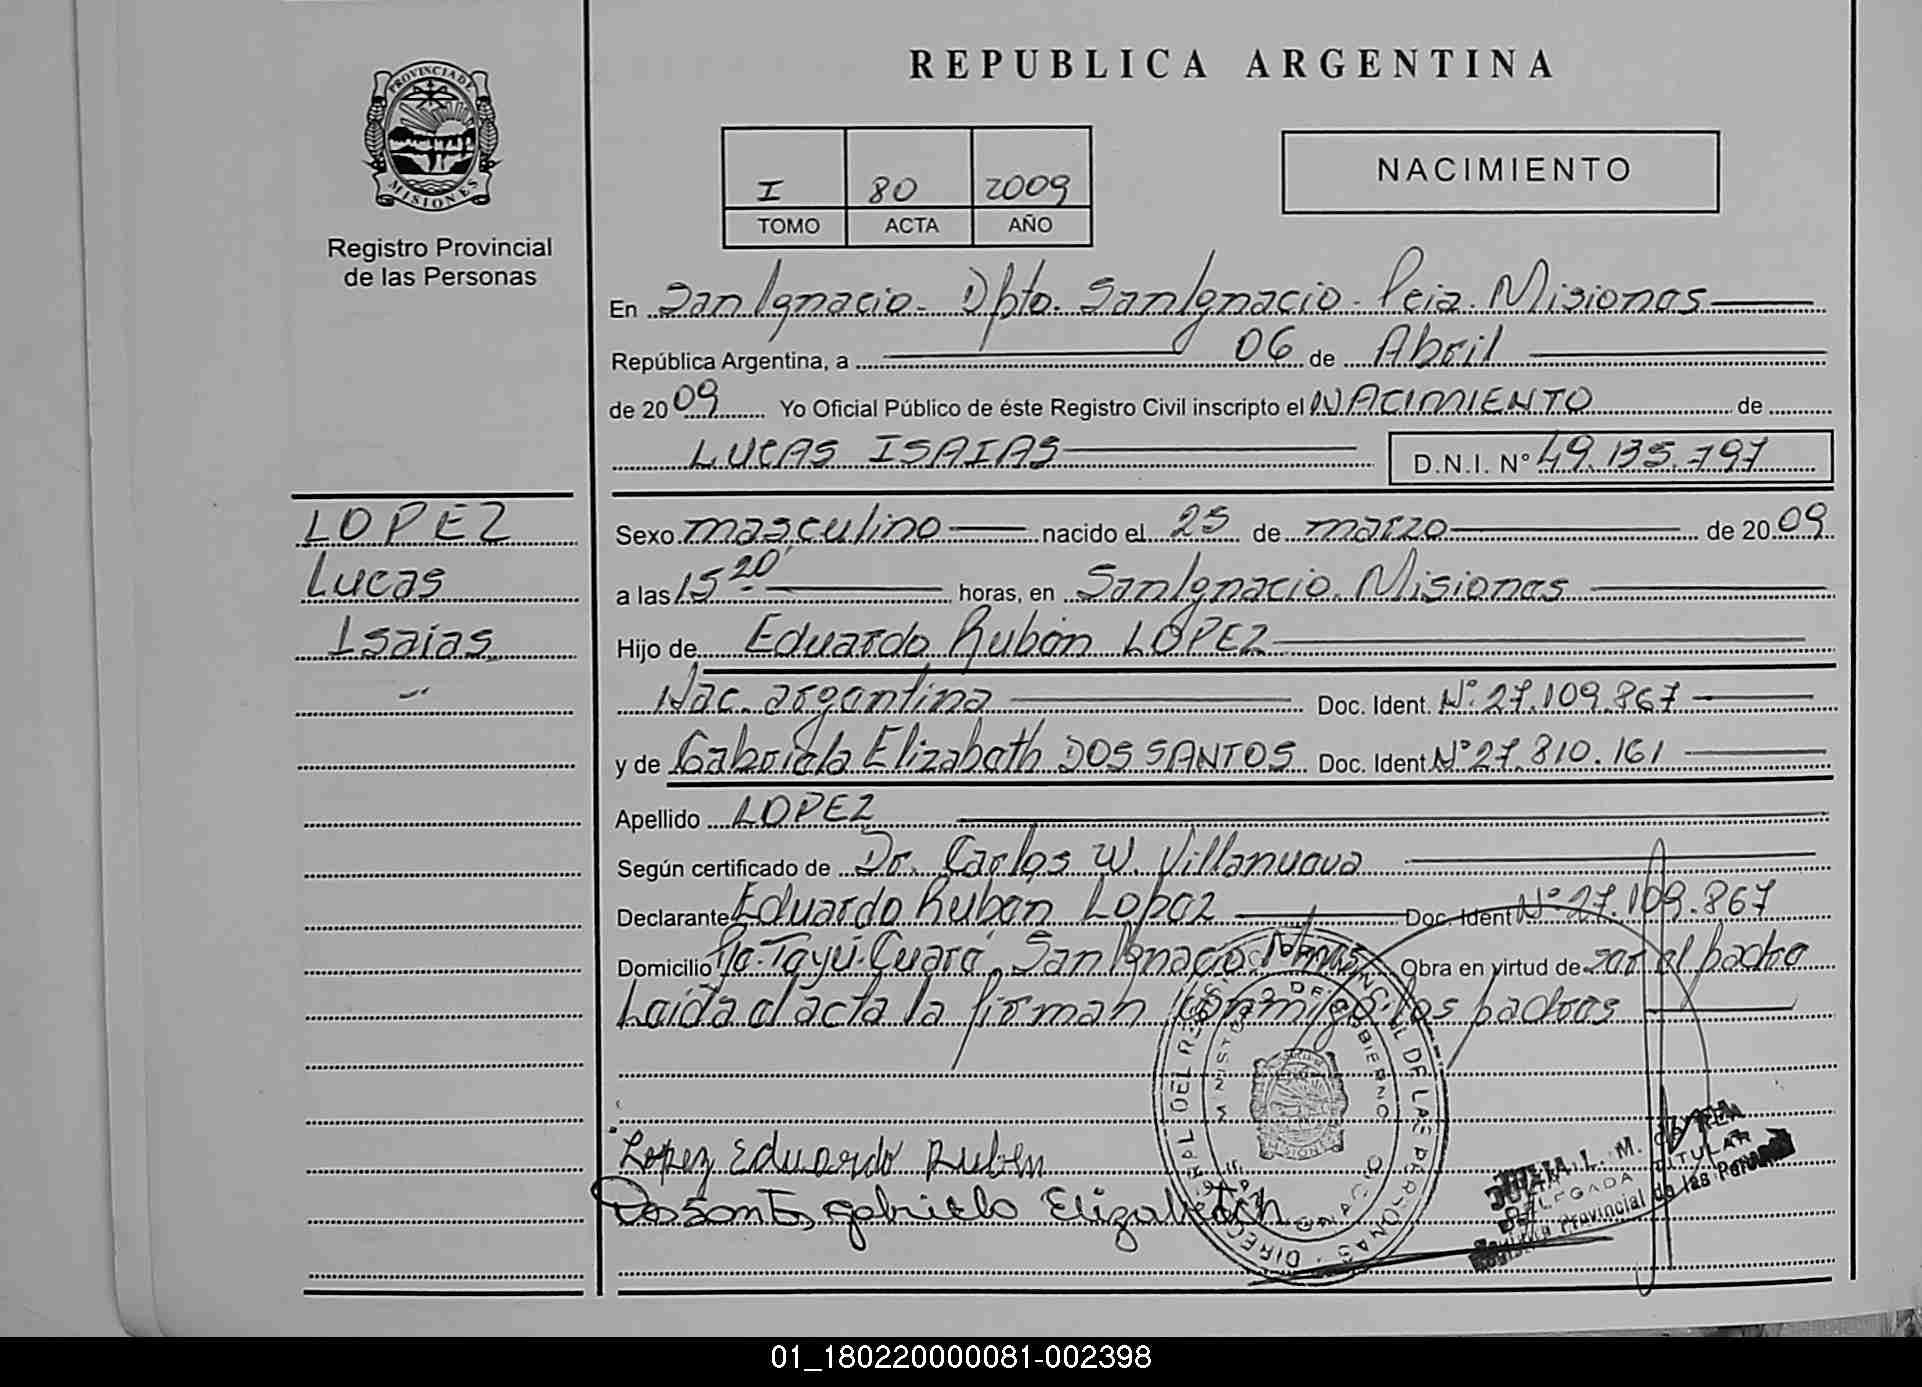 PROVINCIA DE
MISIONES
Registro Provincial
de las Personas
LOPEZ
Lucas
Isaías
REPUBLICA ARGENTINA
I 80 2009
TOMO ACTA AÑO
NACIMIENTO
En San Ignacio - Dpto. San Ignacio - Pcia. Misiones
República Argentina, a 06 de Abril
de 2009 Yo Oficial Público de éste Registro Civil inscripto el NACIMIENTO de
LUCAS ISAIAS D.N.I. N° 49.135.797
Sexo masculino nacido el 25 de marzo de 2009
a las 15 20' horas, en San Ignacio. Misiones
Hijo de Eduardo Rubén LOPEZ
Nac. argentina Doc. Ident. N° 27.109.867
y de Gabriela Elizabeth DOS SANTOS Doc. Ident N° 27.810.161
Apellido LOPEZ
Según certificado de Dr. Carlos W. Villanueva
Declarante Eduardo Rubén Lopez Doc. Ident N° 27.109.867
Domicilio Tayú-Cuaré, San Ignacio Mnes Obra en virtud de ser el padre
Leída el acta la firman conmigo los padres
Lopez Eduardo Ruben
Dos Santos gabriela Elizabetch
MINISTERIO DE GOBIERNO
DE LAS PERSONAS
L. M.
DELEGADA TITULAR
Registro Provincial de las Personas
01_180220000081-002398